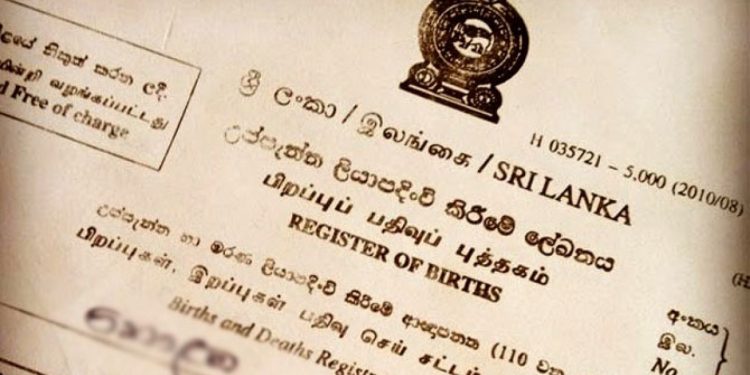 නිකුත් කරන ලදී
வழங்கப்பட்டது
Free of charge
ශ්‍රී ලංකා / இலங்கை / SRI LANKA
H 035721 – 5,000 (2010/08)
උප්පැන්න ලියාපදිංචි කිරීමේ ලේඛනය
பிறப்புப் பதிவுப் புத்தகம்
REGISTER OF BIRTHS
උප්පැන්න හා මරණ ලියාපදිංචි කිරීමේ ආඥාපනත (110 වන
பிறப்புகள், இறப்புகள் பதிவு செய் சட்டம்
Births and Deaths
අංකය
இல.
No.